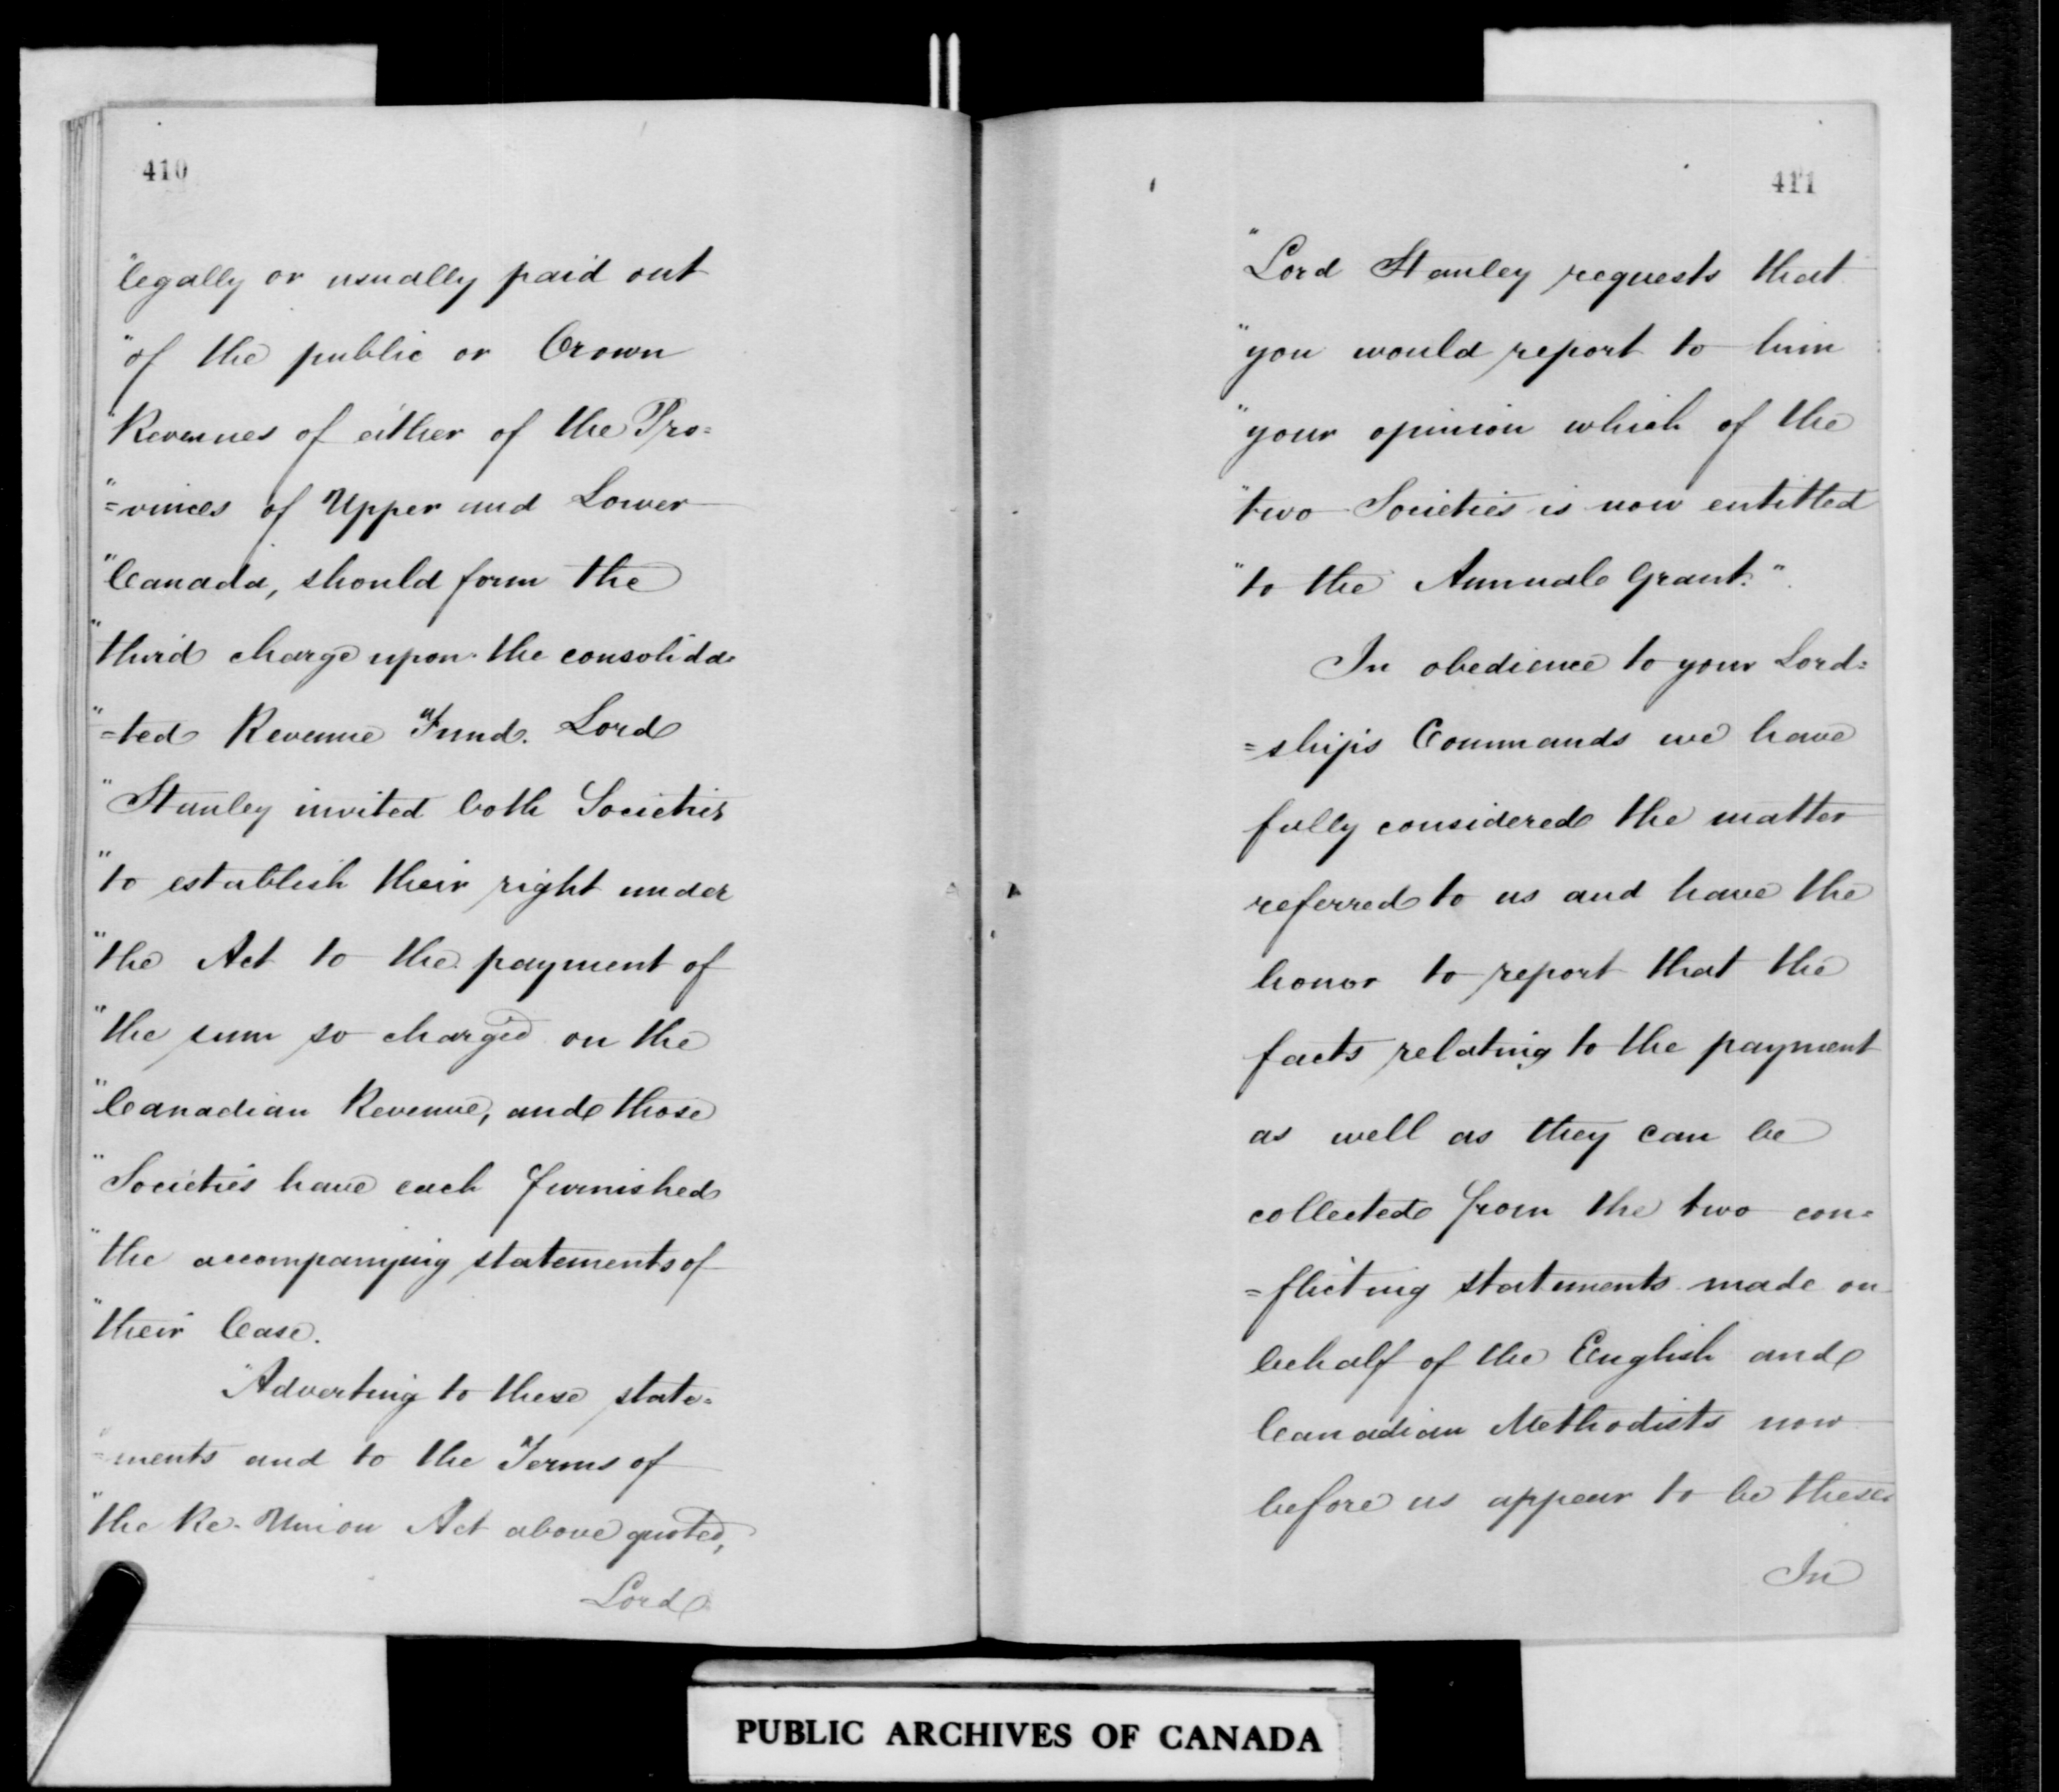 410
"legally or usually paid out
"of the public or Crown
"Revenues of either of the Pro=
"=vinces of Upper and Lower
"Canada, should form the
"third charge upon the consolida-
"=ted Revenue Fund. Lord
"Stanley invited both Societies
"to establish their right under
"the Act to the payment of
"the sum so charged on the
"Canadian Revenue, and those
"Societies have each furnished
"the accompanying statements of
"their Case.
"Adverting to these state=
"=ments and to the Terms of
"the Re-Union Act above quoted,
Lord
411
"Lord Stanley requests that
"you would report to him
"your opinion which of the
"two Societies is now entitled
"to the Annual Grant."
In obedience to your Lord=
=ship's Commands we have
fully considered the matter
referred to us and have the
honor to report that the
facts relating to the payment
as well as they can be
collected from the two con=
=flicting statements made on
behalf of the English and
Canadian Methodists now
before us appear to be these.
In
PUBLIC ARCHIVES OF CANADA